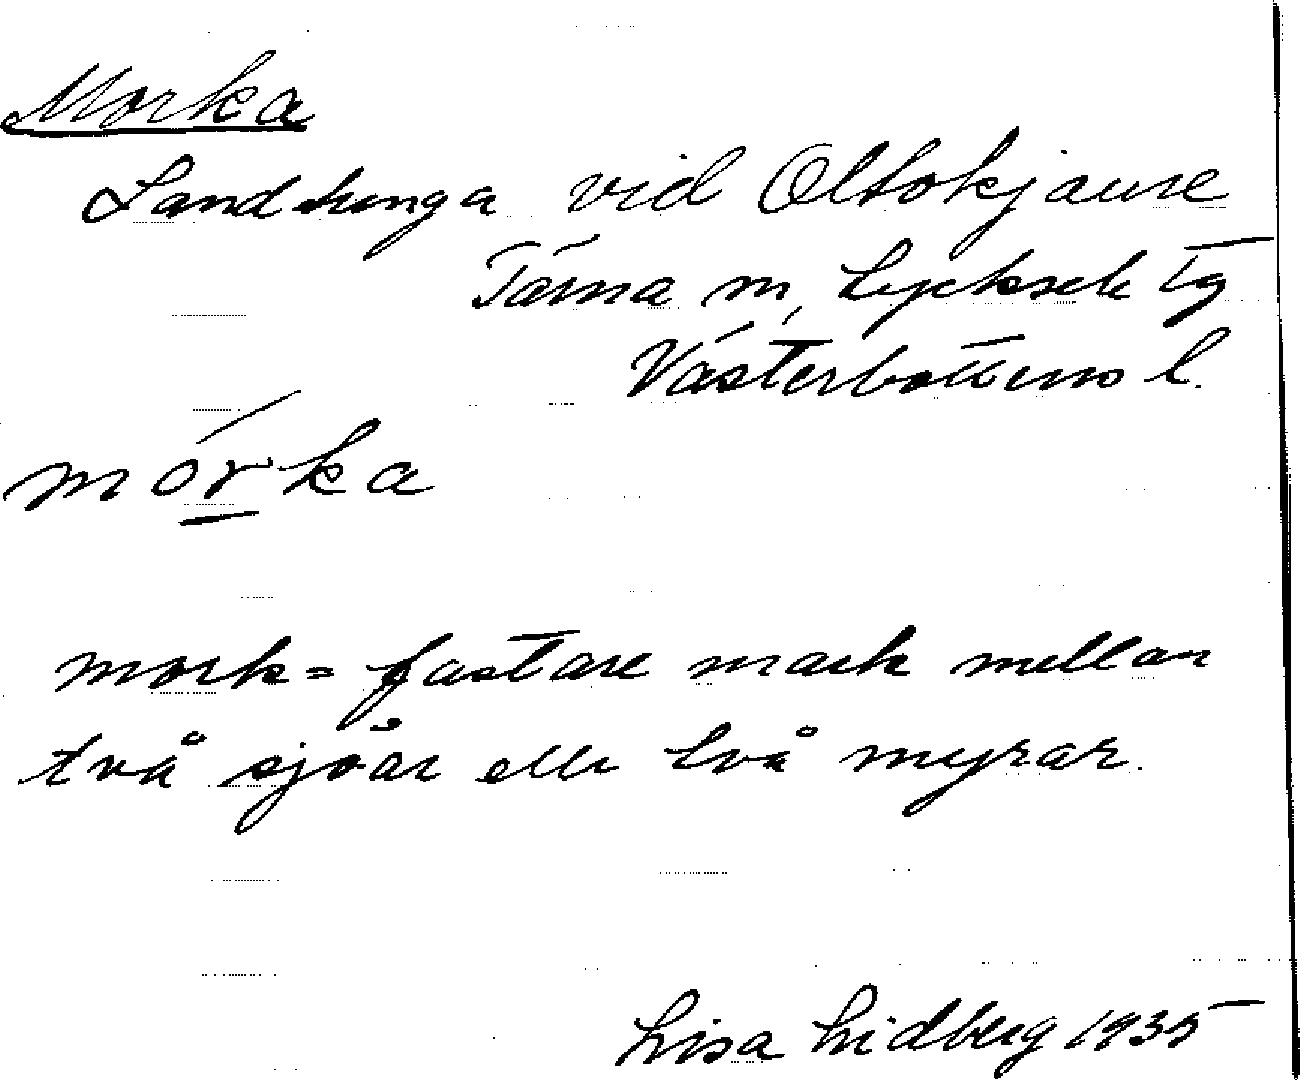 Morka
Landtunga vid Oltokjaure
Tärna sn, Lycksele tg
Västerbottens l.
mórka
mork = fastare mark mellan
två sjöar eller två myrar.
Lisa Lidberg 1935